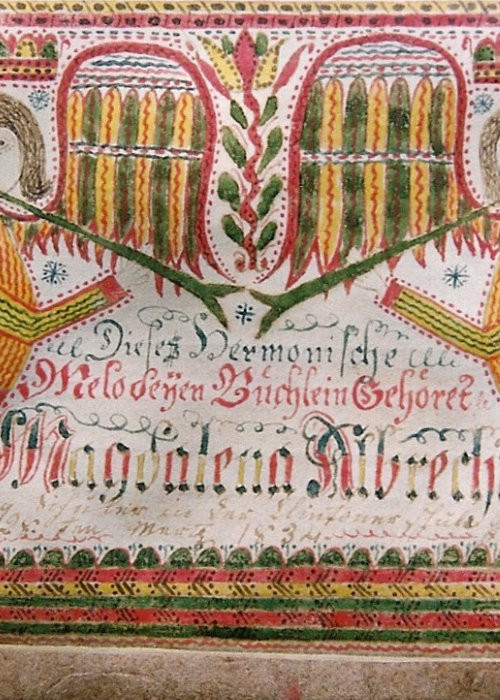 Dieses Hermonische
Melodeÿen Büchlein Gehöret
Magdalena Albrech
den Mertz 1834